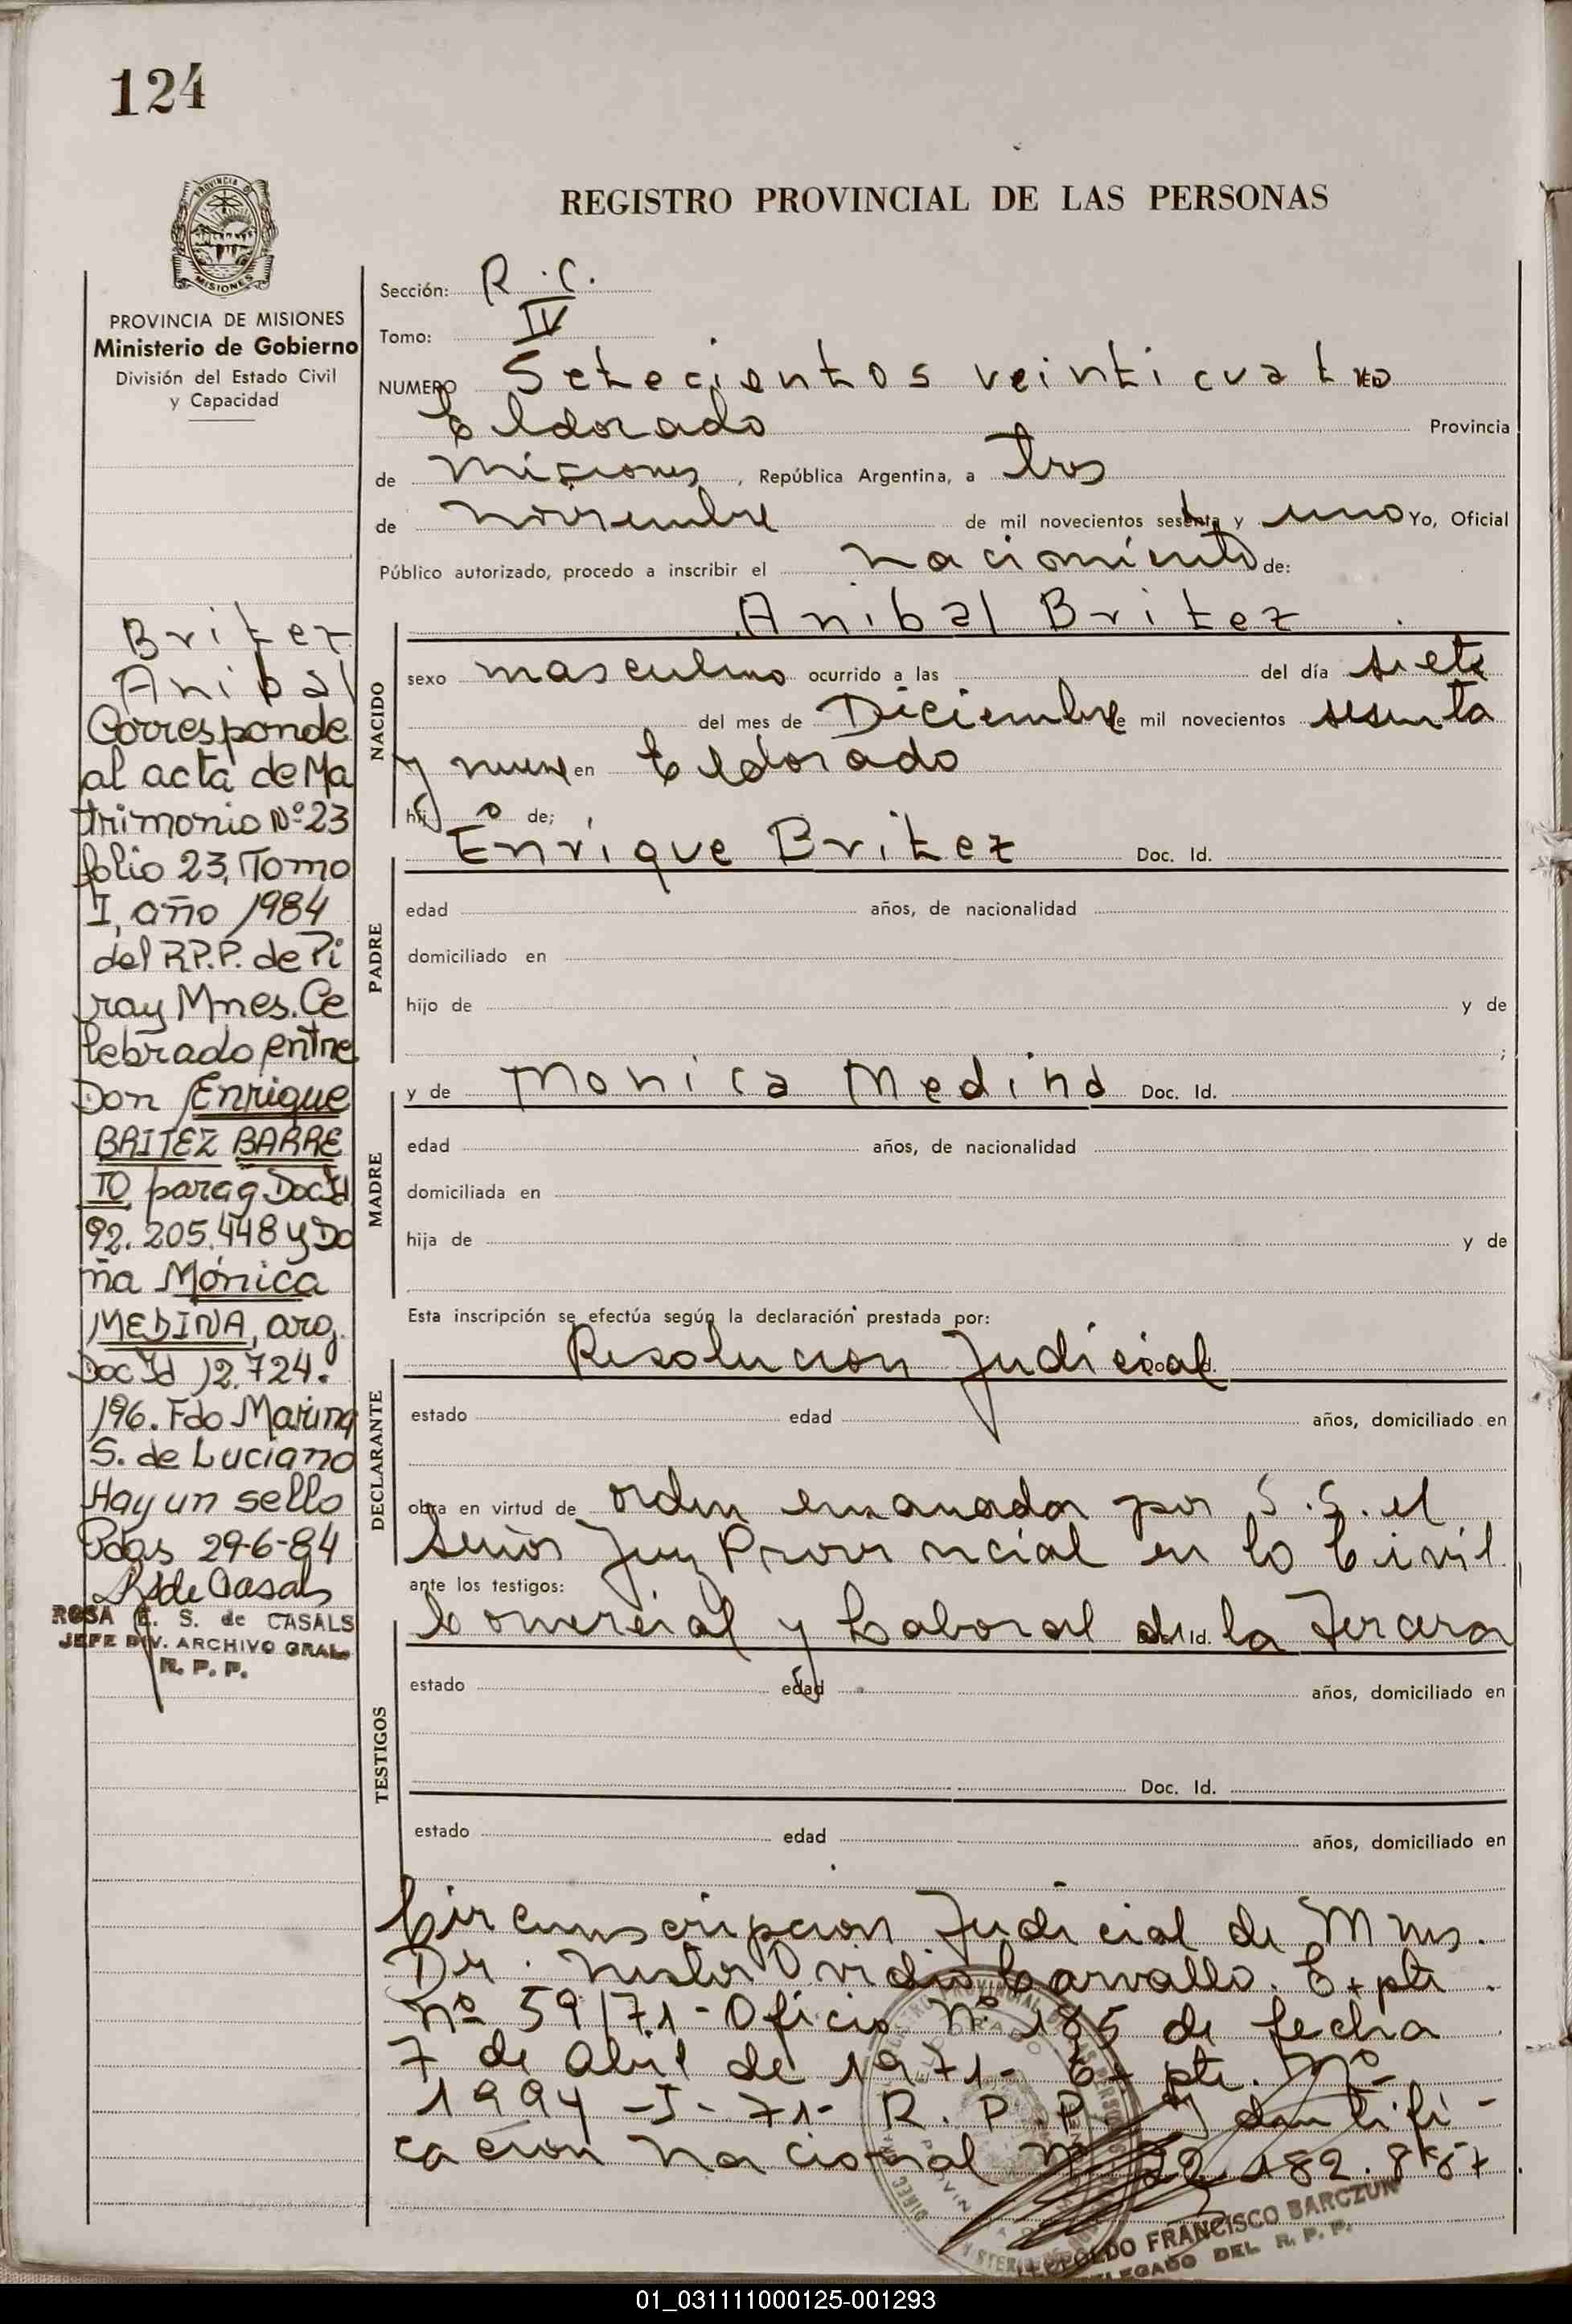 124
PROVINCIA DE
MISIONES
REGISTRO PROVINCIAL DE LAS PERSONAS
PROVINCIA DE MISIONES
Ministerio de Gobierno
División del Estado Civil
y Capacidad
Sección: R.C.
Tomo: IV
NUMERO Setecientos veinticuatro
Eldorado Provincia
de Misiones, República Argentina, a tres
de noviembre de mil novecientos sesenta y uno Yo, Oficial
Público autorizado, procedo a inscribir el nacimiento de:
Britez
Anibal
Corresponde
al acta de Ma
trimonio Nº 23
folio 23, Tomo
I, año 1984
del R.P.P. de Pi
ray Mnes. Ce
lebrado entre
Don Enrique
BRITEZ BARRE
TO parag Doc Id
92.205.448 y Do
ña Mónica
MEDINA, arg.
Doc Id 12.724.
196. Fdo Marina
S. de Luciano
Hay un sello
Pdas 29-6-84
RSde Casals
ROSA E. S. de CASALS
JEFE DIV. ARCHIVO GRAL.
R. P. P.
NACIDO
Anibal Britez
sexo masculino ocurrido a las del día siete
del mes de Diciembre de mil novecientos sesenta
y nueve en Eldorado
hijo de;
PADRE
Enrique Britez Doc. Id.
edad años, de nacionalidad
domiciliado en
hijo de y de
;
MADRE
y de Monica Medina Doc. Id.
edad años, de nacionalidad
domiciliada en
hija de y de
Esta inscripción se efectúa según la declaración prestada por:
DECLARANTE
Resolucion Judicial Doc. Id.
estado edad años, domiciliado en
obra en virtud de orden emanada por S.S. el
señor Juez Provincial en lo Civil
ante los testigos:
TESTIGOS
Comercial y Laboral de la Tercera
estado edad años, domiciliado en
Doc. Id.
estado edad años, domiciliado en
Circunscripcion Judicial de Mnes.
Dr. Nestor Ovidio Carvallo. Expte.
Nº 59/71- Oficio Nº 185 de fecha
7 de Abril de 1971- Expte. Nº
1994-J-71- R.P.P. Identifi-
cacion Nacional Nº
LEOPOLDO FRANCISCO BARCZUK
DELEGADO DEL R. P. P.
01_031111000125-001293